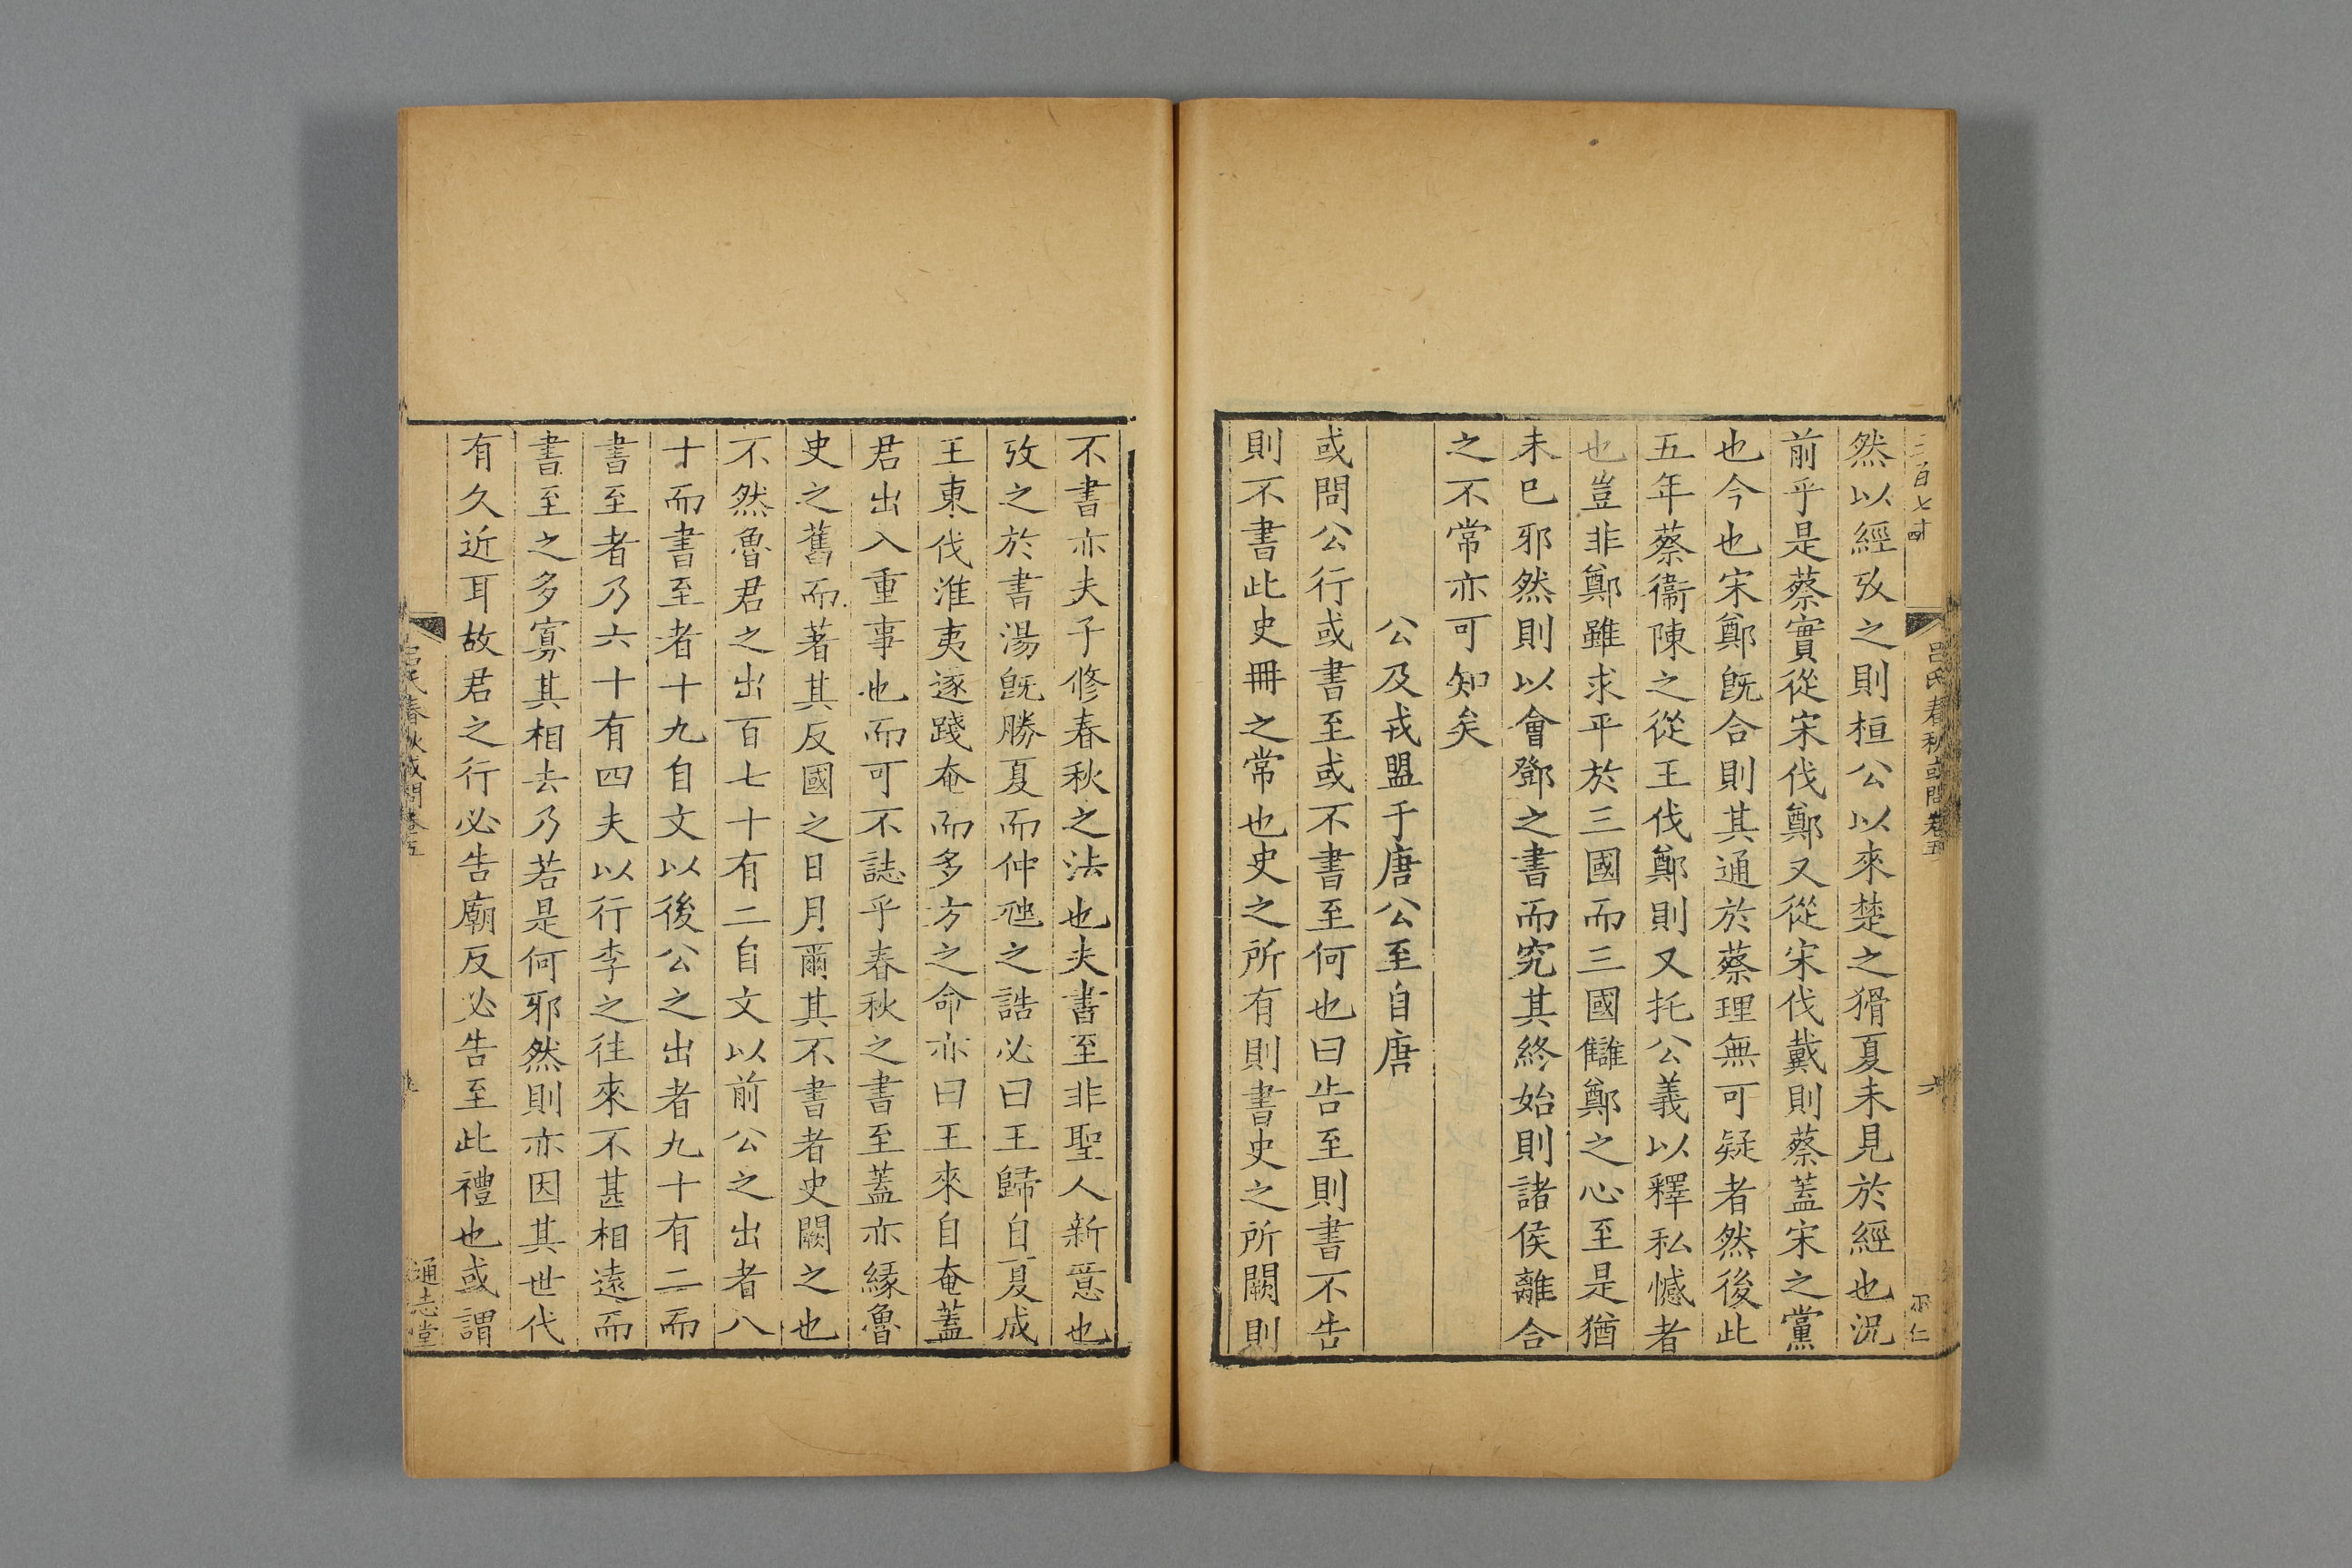 三百七十四
呂氏春秋或問卷五
然以經攷之則桓公以來楚之猾夏未見於經也況
前乎是蔡實從宋伐鄭又從宋伐戴則蔡蓋宋之黨
也今也宋鄭旣合則其通於蔡理無可疑者然後此
五年蔡衞陳之從王伐鄭則又托公義以釋私憾者
也豈非鄭雖求平於三國而三國讎鄭之心至是猶
未已邪然則以會鄧之書而究其終始則諸侯離合
之不常亦可知矣
公及戎盟于唐公至自唐
或問公行或書至或不書至何也曰告至則書不告
則不書此史冊之常也史之所有則書史之所闕則
不書亦夫子修春秋之法也夫書至非聖人新意也
攷之於書湯旣勝夏而仲虺之誥必曰王歸自夏成
王東伐淮夷逐踐奄而多方之命亦曰王來自奄蓋
君出入重事也而可不誌乎春秋之書至蓋亦緣魯
史之舊而著其反國之日月爾其不書者史闕之也
不然魯君之出百七十有二自文以前公之出者八
十而書至者十九自文以後公之出者九十有二而
書至者乃六十有四夫以行李之往來不甚相遠而
書至之多寡其相去乃若是何邪然則亦因其世代
有久近耳故君之行必告廟反必告至此禮也或謂
呂氏春秋或問卷五
通志堂